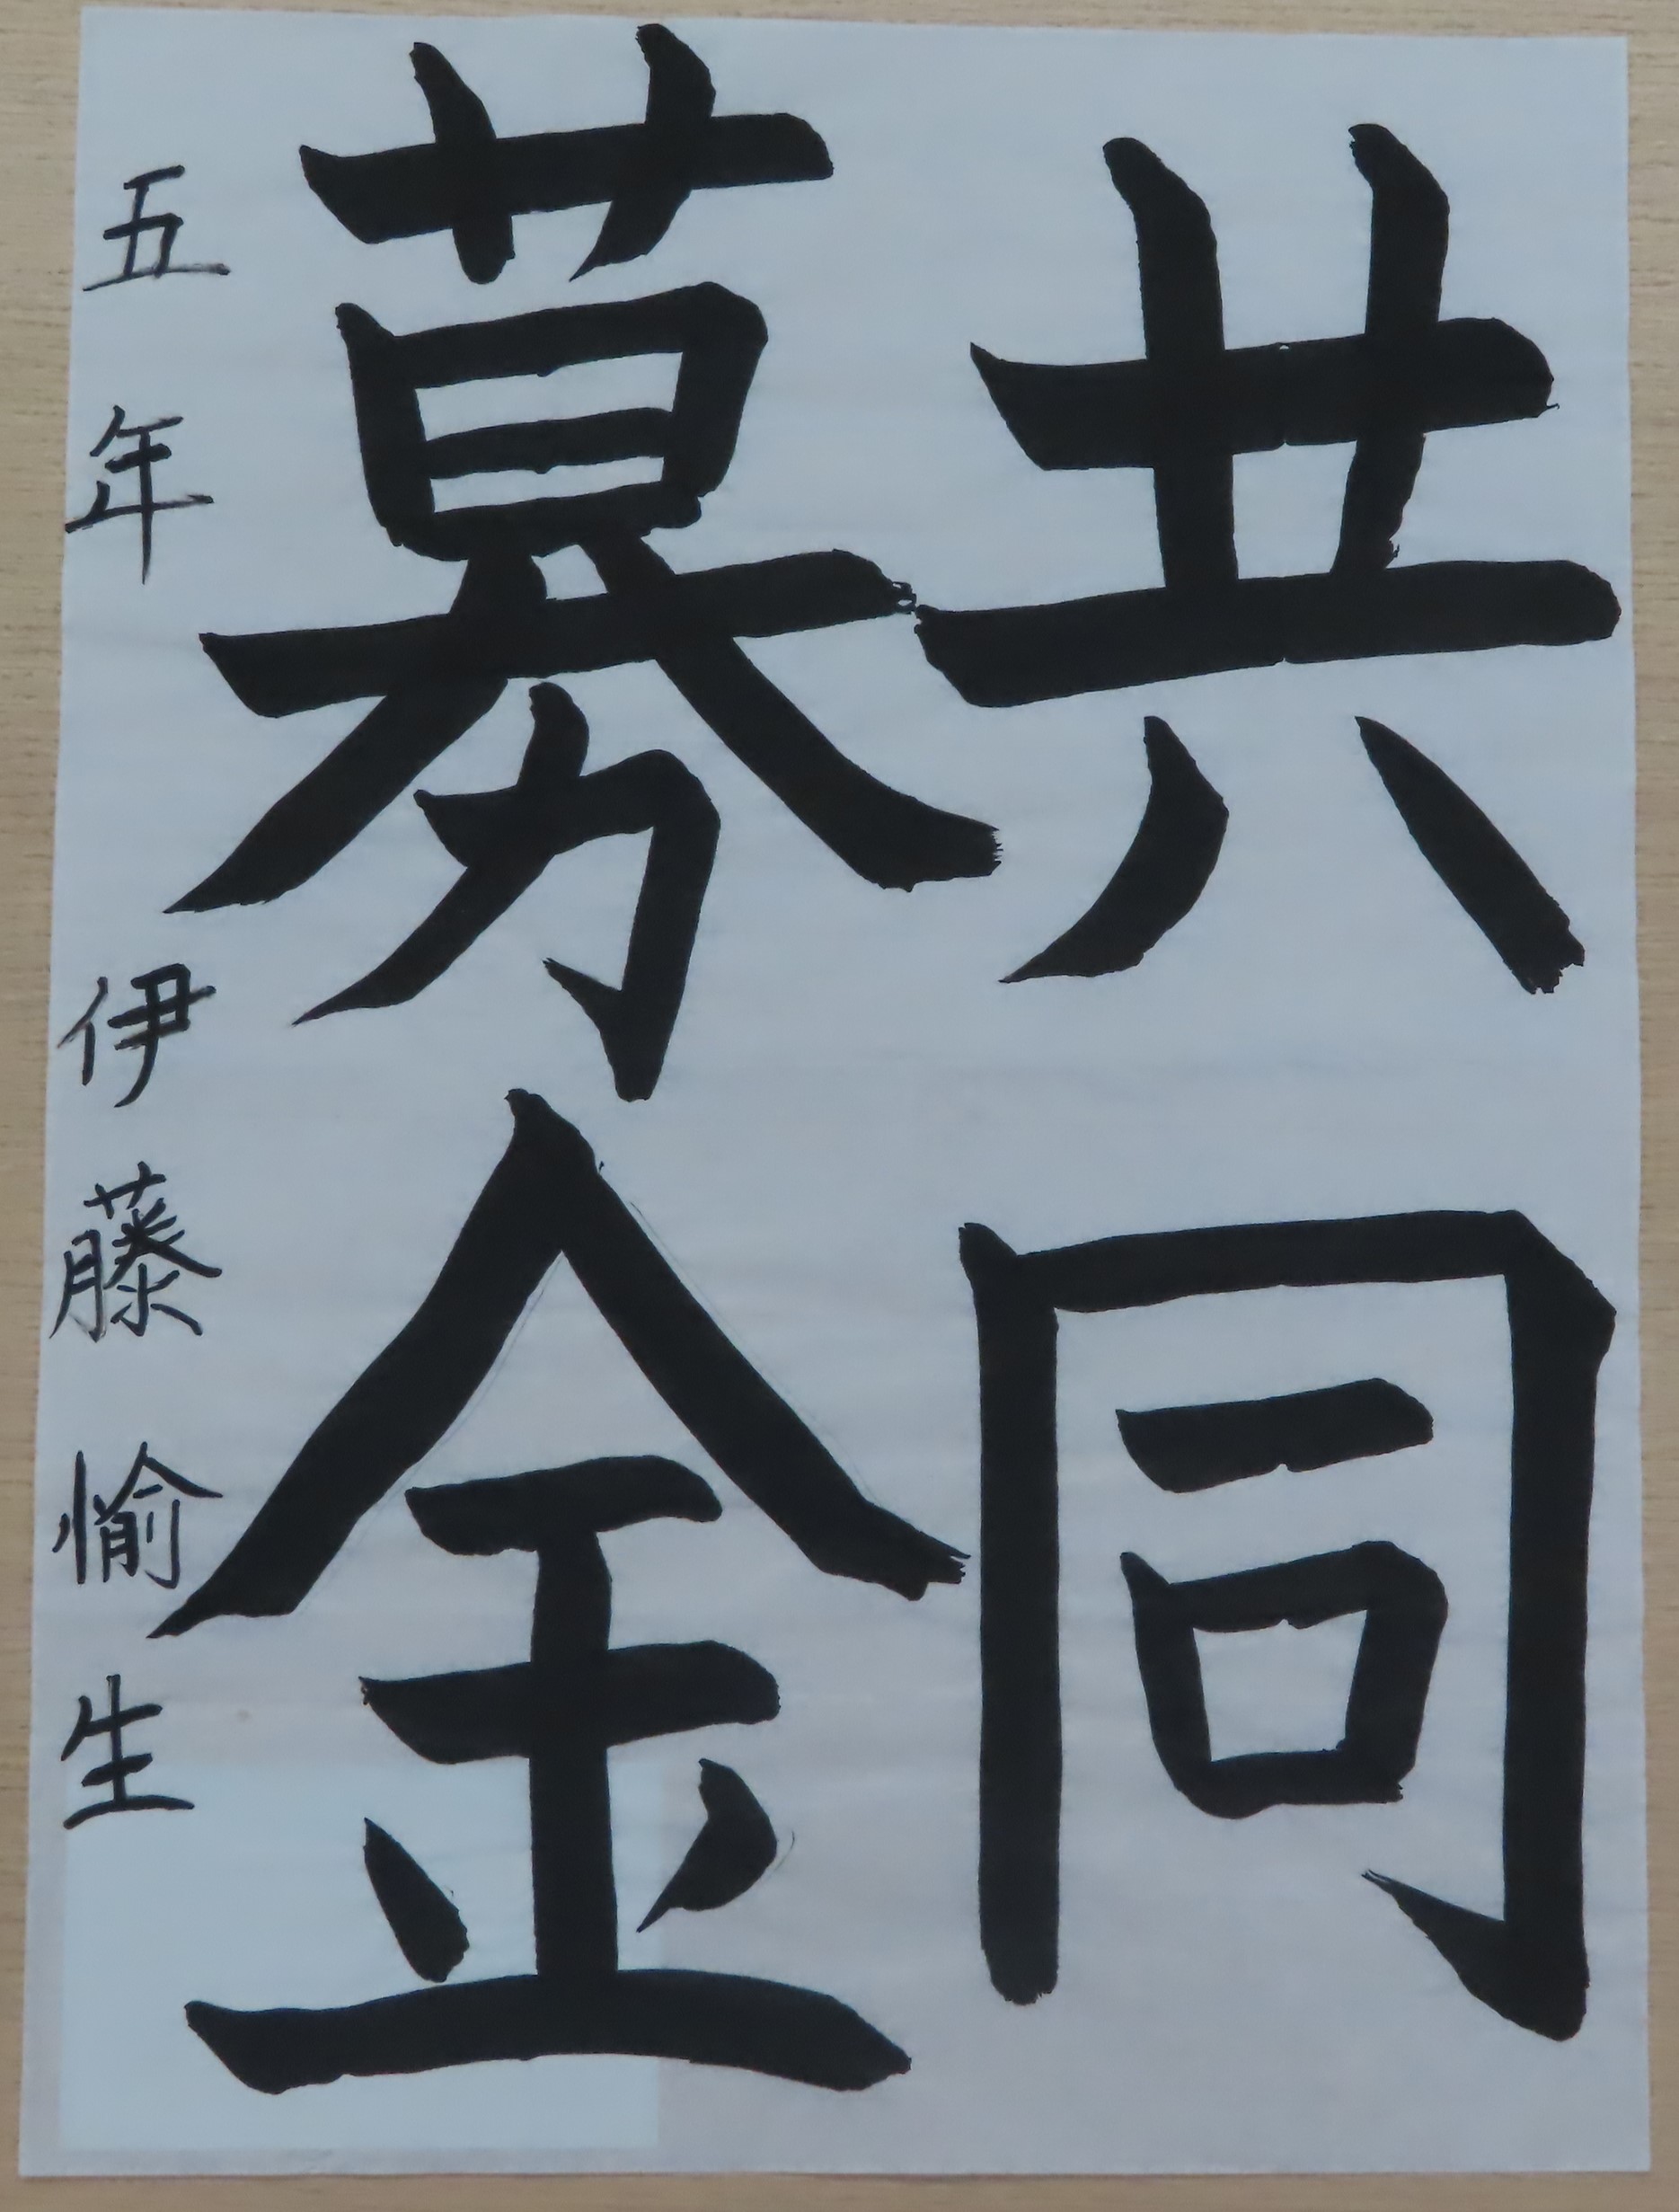 共同
募金
五年 伊藤愉生